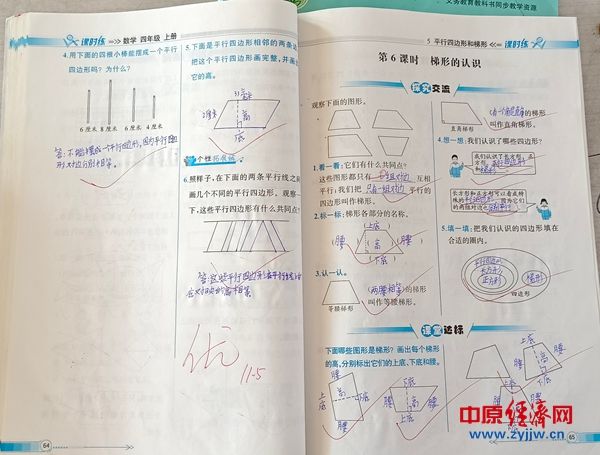 义务教育教科书同步教学资源
课时练 数学 四年级 上册
4.用下面的四根小棒能摆成一个平行
四边形吗？为什么？
6厘米 8厘米 6厘米 4厘米
答:不能摆成一个平行四边形,因为平行四边
形对边分别相等。
5.下面是平行四边形相邻的两条边
把这个平行四边形画完整,并画出
它的高。
高
底
个性拓展练
6.照样子,在下面的两条平行线之间
画几个不同的平行四边形。观察一
下,这些平行四边形有什么共同点?
优
11.5
64
5 平行四边形和梯形 课时练
第6课时 梯形的认识
探究交流
观察下面的图形。
1.看一看:它们有什么共同点?
这些图形都只有一组对边互相
平行;我们把只有一组对边平行的
四边形叫作梯形。
2.标一标:梯形各部分的名称。
(上底)
(腰) (高) (腰)
(下底)
3.认一认。
(两腰相等)的梯形
叫作等腰梯形。
等腰梯形
的梯形
叫作直角梯形。
直角梯形
4.想一想:我们认识了哪些四边形?
我们认识了长方形、正
长方形和正方形可以看成特
殊的平行四边形,因为它们
的两组对边
5.填一填:把我们认识的四边形填在
合适的圈内。
平行四边形
长方形
正方形
梯形
四边形
课堂达标
下面哪些图形是梯形?画出每个梯形
的高,分别标出它们的上底、下底和腰。
腰
上底 高 下底
腰
上底
腰 高 腰
下底
上底
腰 高 腰
下底
65
中原经济网
www.zyjjw.cn